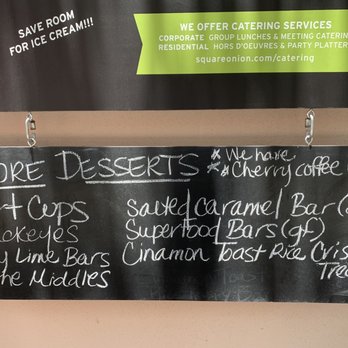 SAVE ROOM
FOR ICE CREAM!!!
WE OFFER CATERING SERVICES
CORPORATE GROUP LUNCHES & MEETING CATERIN
RESIDENTIAL HORS D'OEUVRES & PARTY PLATTER
squareonion.com/catering
ORE DESSERTS
* We have
* Cherry coffee
t Cups
keyes
y Lime Bars
he Middles
Salted Caramel Bar (
Superfood Bars (gf)
Cinamon Toast Rice Cris
Trea